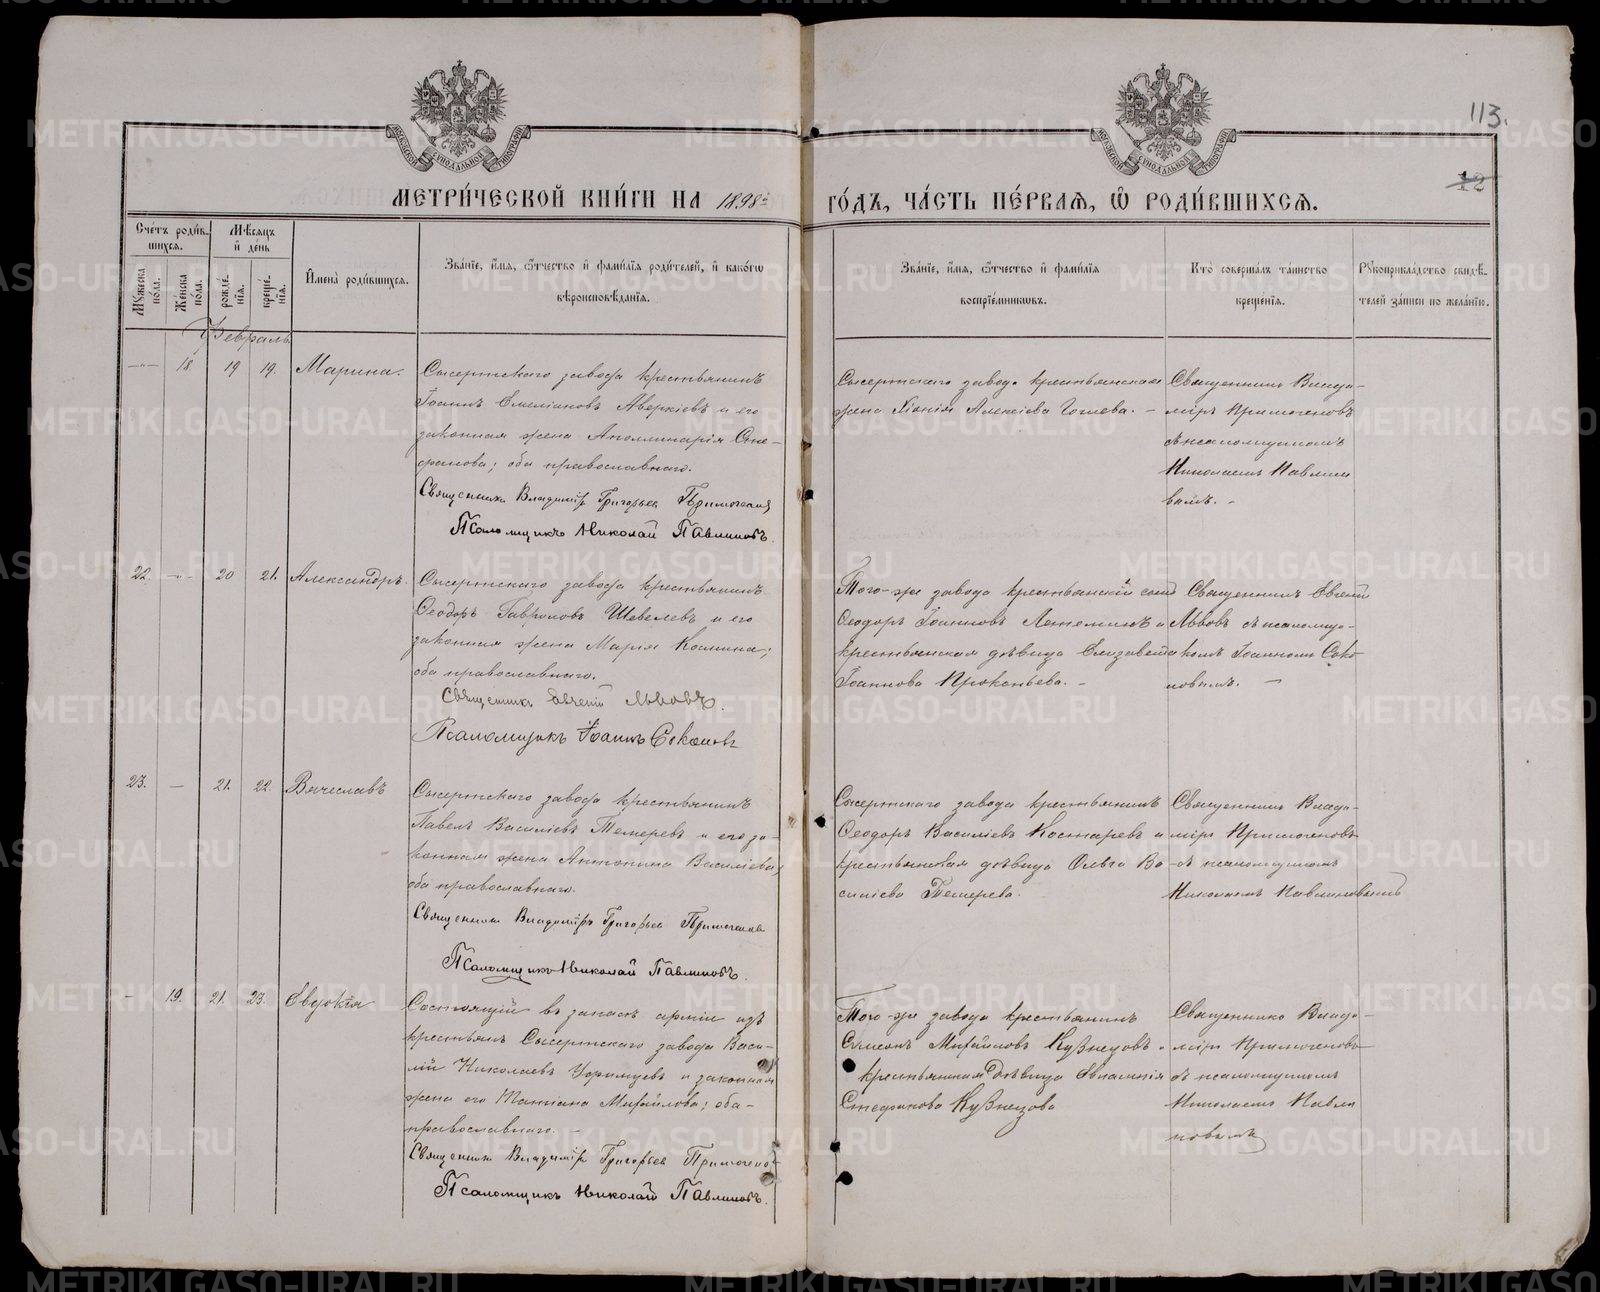 113.
12
МЕТРИ́ЧЕСКОЙ КНИ́ГИ НА 1898й ГО́ДЪ, ЧА́СТЬ ПЕ́РВАЯ, Ѡ РОДИ́ВШИХСЯ.
Сче́тъ роди́вшихся.
Мѣ́сяцъ и҆ де́нь
Мꙋ́жеска по́ла.
Же́нска по́ла.
рожде́нїѧ.
креще́нїѧ.
И҆мена̀ роди́вшихсѧ.
Зва́нїе, и҆́мѧ, ѻ҆́тчество и҆ фами́лїѧ роди́телей, и҆ како́гѡ
вѣроисповѣ́данїѧ.
Зва́нїе, и҆́мѧ, ѻ҆́тчество и҆ фами́лїѧ
воспрїе́мникѡвъ.
Кто̀ соверша́лъ та́инство
креще́нїѧ.
Рꙋкоприкла́дство свидѣ́-
телей за́писи по жела́нїю.
Февраль
18 19 19. Марина.
Сысертскаго завода крестьянинъ
Іоаннъ Емеліановъ Аверкіевъ и его
законная жена Аполлинарія Сте-
фанова; оба православнаго.
Священникъ Владимір Григорьев Примогенов
Псаломщикъ Николай Павлиновъ.
Сысертскаго завода крестьянская
жена Хіонія Алексіева
Священникъ Влади-
міръ Примогеновъ
съ псаломщикомъ
Николаемъ Павлино
вымъ. -
22. 20 21. Александръ.
Сысертскаго завода крестьянинъ
Ѳеодоръ Гавріиловъ Шевелевъ и его
законная жена Марія Космина;
оба православнаго.
Священникъ Евгеній Львовъ.
Псаломщикъ Іоаннъ Соколовъ
Того-же завода крестьянскій сынъ
Ѳеодоръ Іоанновъ и
крестьянская дѣвица Елизавета
Іоаннова Прокопьева. -
Священникъ Евгеній
Львовъ съ псаломщи-
комъ Іоанномъ Соко-
ловымъ. -
23. - 21. 22. Вячеславъ
Сысертскаго завода крестьянинъ
Павелъ Василіевъ Темеревъ и его за-
конная жена Антонина Василіева;
оба православнаго.
Священникъ Владиміръ Григорьев Примогенов
Псаломщикъ Николай Павлиновъ.
Сысертскаго завода крестьянинъ
Ѳеодоръ Василіевъ Костаревъ и
крестьянская дѣвица Ольга Ва
силіева Темерева.
Священникъ Влади-
міръ Примогеновъ
съ псаломщикомъ
Николаемъ Павлиновымъ
- 19. 21. 23. Евдокія
Состоящій въ запасѣ арміи изъ
крестьянъ Сысертскаго завода Васи-
лій Николаевъ и законная
жена его Татіана Михайлова; оба
православнаго. -
Священникъ Владимір Григорьев Примогенов
Псаломщикъ Николай Павлиновъ.
Того-же завода крестьянинъ
Симеонъ Михайловъ Кузнецовъ и
крестьянская дѣвица
Стефанова Кузнецова
Священникъ Влади-
міръ Примогеновъ
съ псаломщикомъ
Николаемъ Павли
новымъ